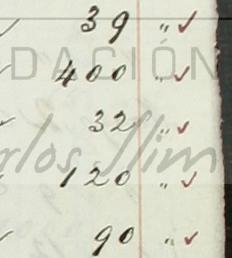 39 "✓
DACIÓN
400 "✓
32 "✓
rlos Slim
120 "✓
90 "✓